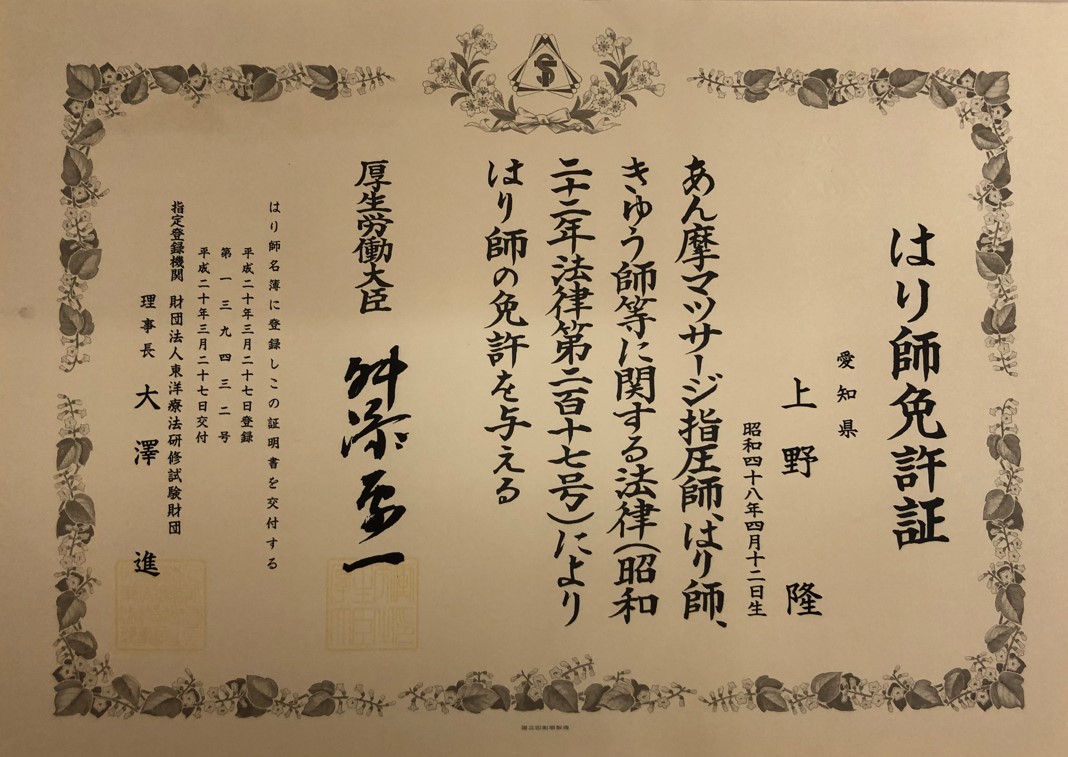 はり師免許証
愛知県
上野 隆
昭和四十八年四月十二日生
あん摩マツサージ指圧師、はり師、
きゆう師等に関する法律（昭和
二十二年法律第二百十七号）により
はり師の免許を与える
厚生労働大臣 舛添要一
はり師名簿に登録しこの証明書を交付する
平成二十年三月二十七日登録
第一三九四三二号
平成二十年三月二十七日交付
指定登録機関 財団法人東洋療法研修試験財団
理事長 大澤 進